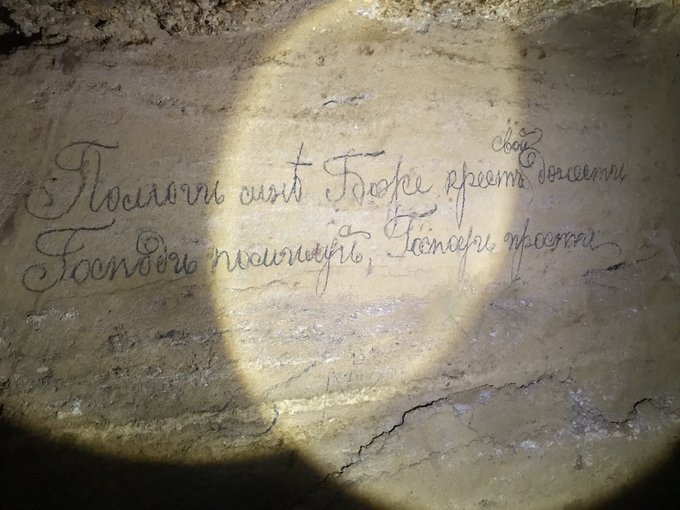 Помоги мнѣ Боже крестъ свой донести
Господи помилуй, Господи прости